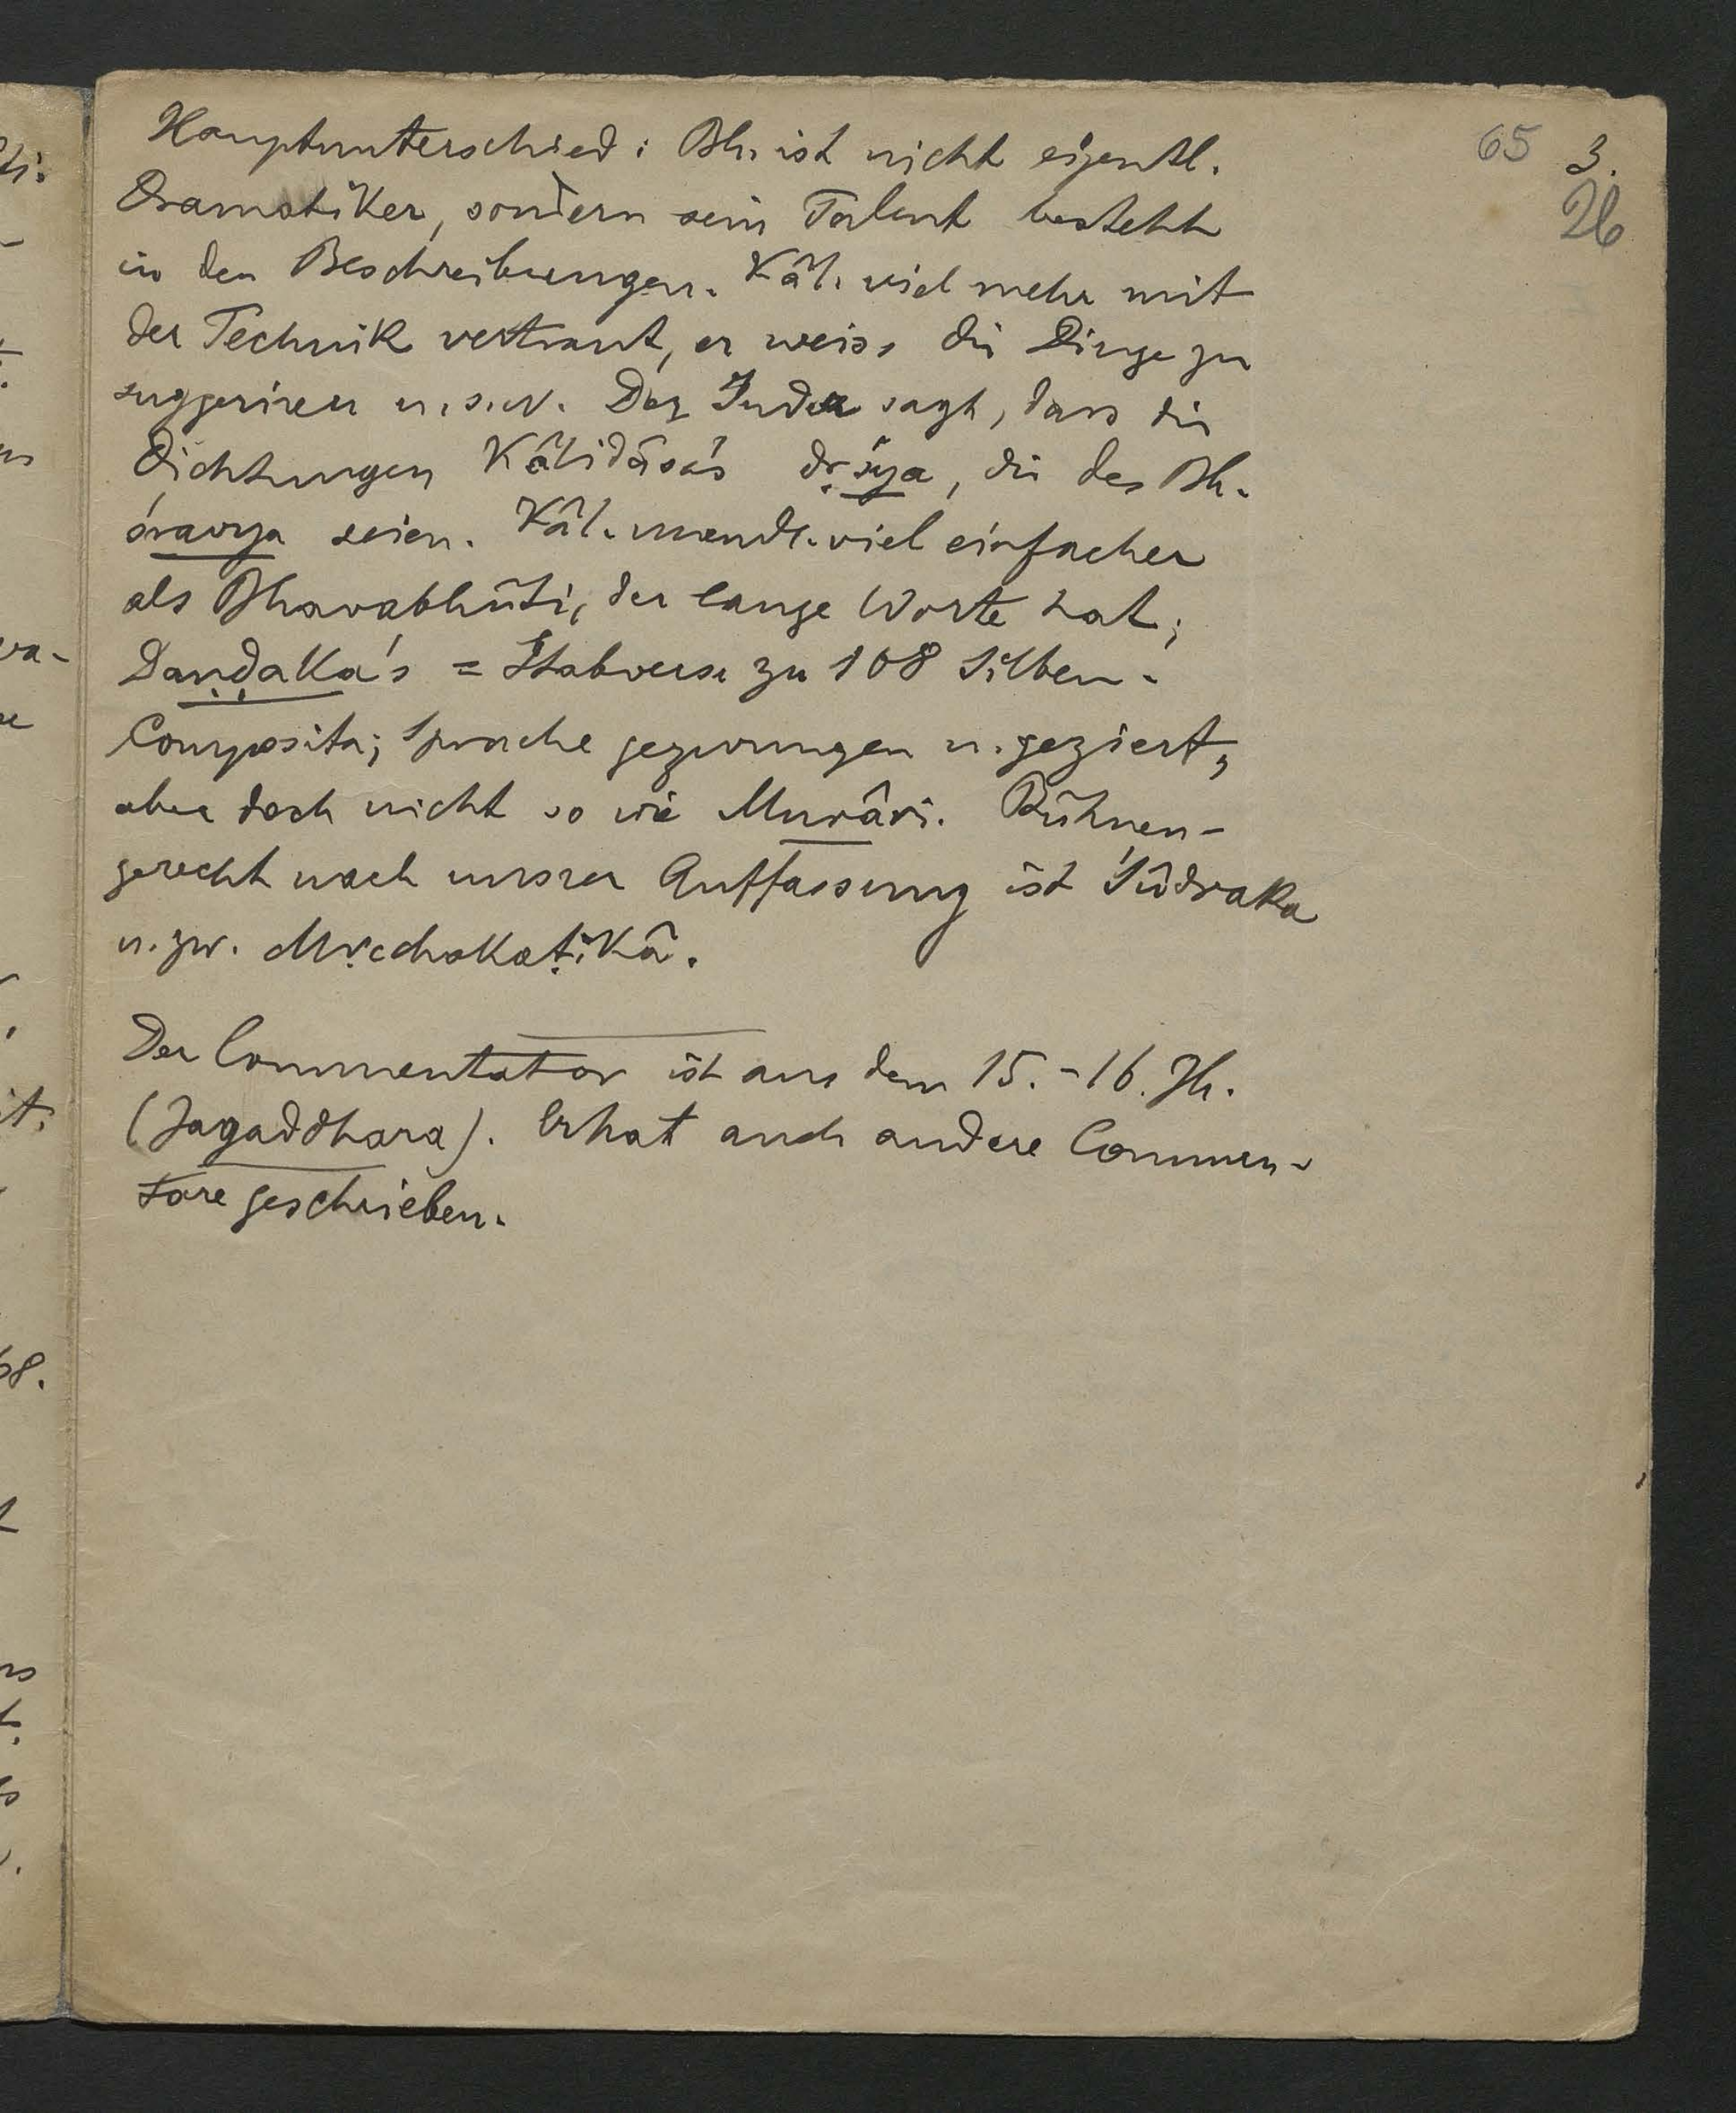 65 3.
26
Hauptunterschied: Bh. ist nicht eigentl.
Dramatiker, sondern sein Talent besteht
in den Beschreibungen. Kâl. viel mehr mit
der Technik vertraut, er weiss die Dinge zu
suggeriren u.s.w. Der Inder sagt, dass die
Dichtungen Kâlidâsa's dṛśya, die des Bh.
śravya seien. Kâl. wendt. viel einfacher
als Bhavabhûti, der lange Worte hat;
Daṇḍaka's = Stabverse zu 108 Silben.
Composita; Sprache gezwungen u. geziert,
aber doch nicht so wie Murâri. Bühnen-
gerecht nach unsrer Auffassung ist Śûdraka
u. zw. Mṛcchakaṭikâ.
Der Commentator ist aus dem 15.-16. Jh.
(Jagaddhara). Er hat auch andere Commen-
tare geschrieben.